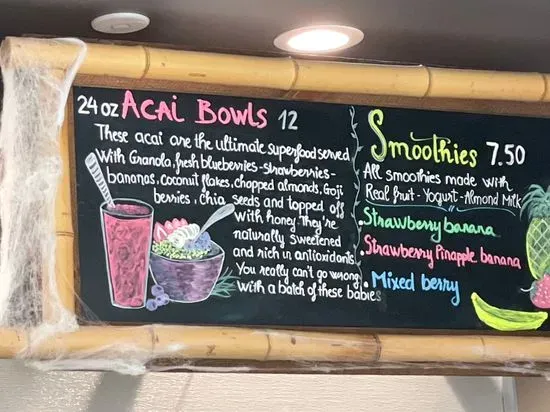 24 oz Acai Bowls 12
These acai are the ultimate superfood served
with Granola, fresh blueberries - strawberries -
bananas, coconut flakes, chopped almonds, Goji
berries, chia seeds and topped off
with honey. They're
naturally sweetened
and rich in antioxidants
You really can't go wrong
with a batch of these babies
Smoothies 7.50
All smoothies made with
Real fruit - Yogurt - Almond Milk
• Strawberry banana
• Strawberry Pinapple banana
• Mixed berry